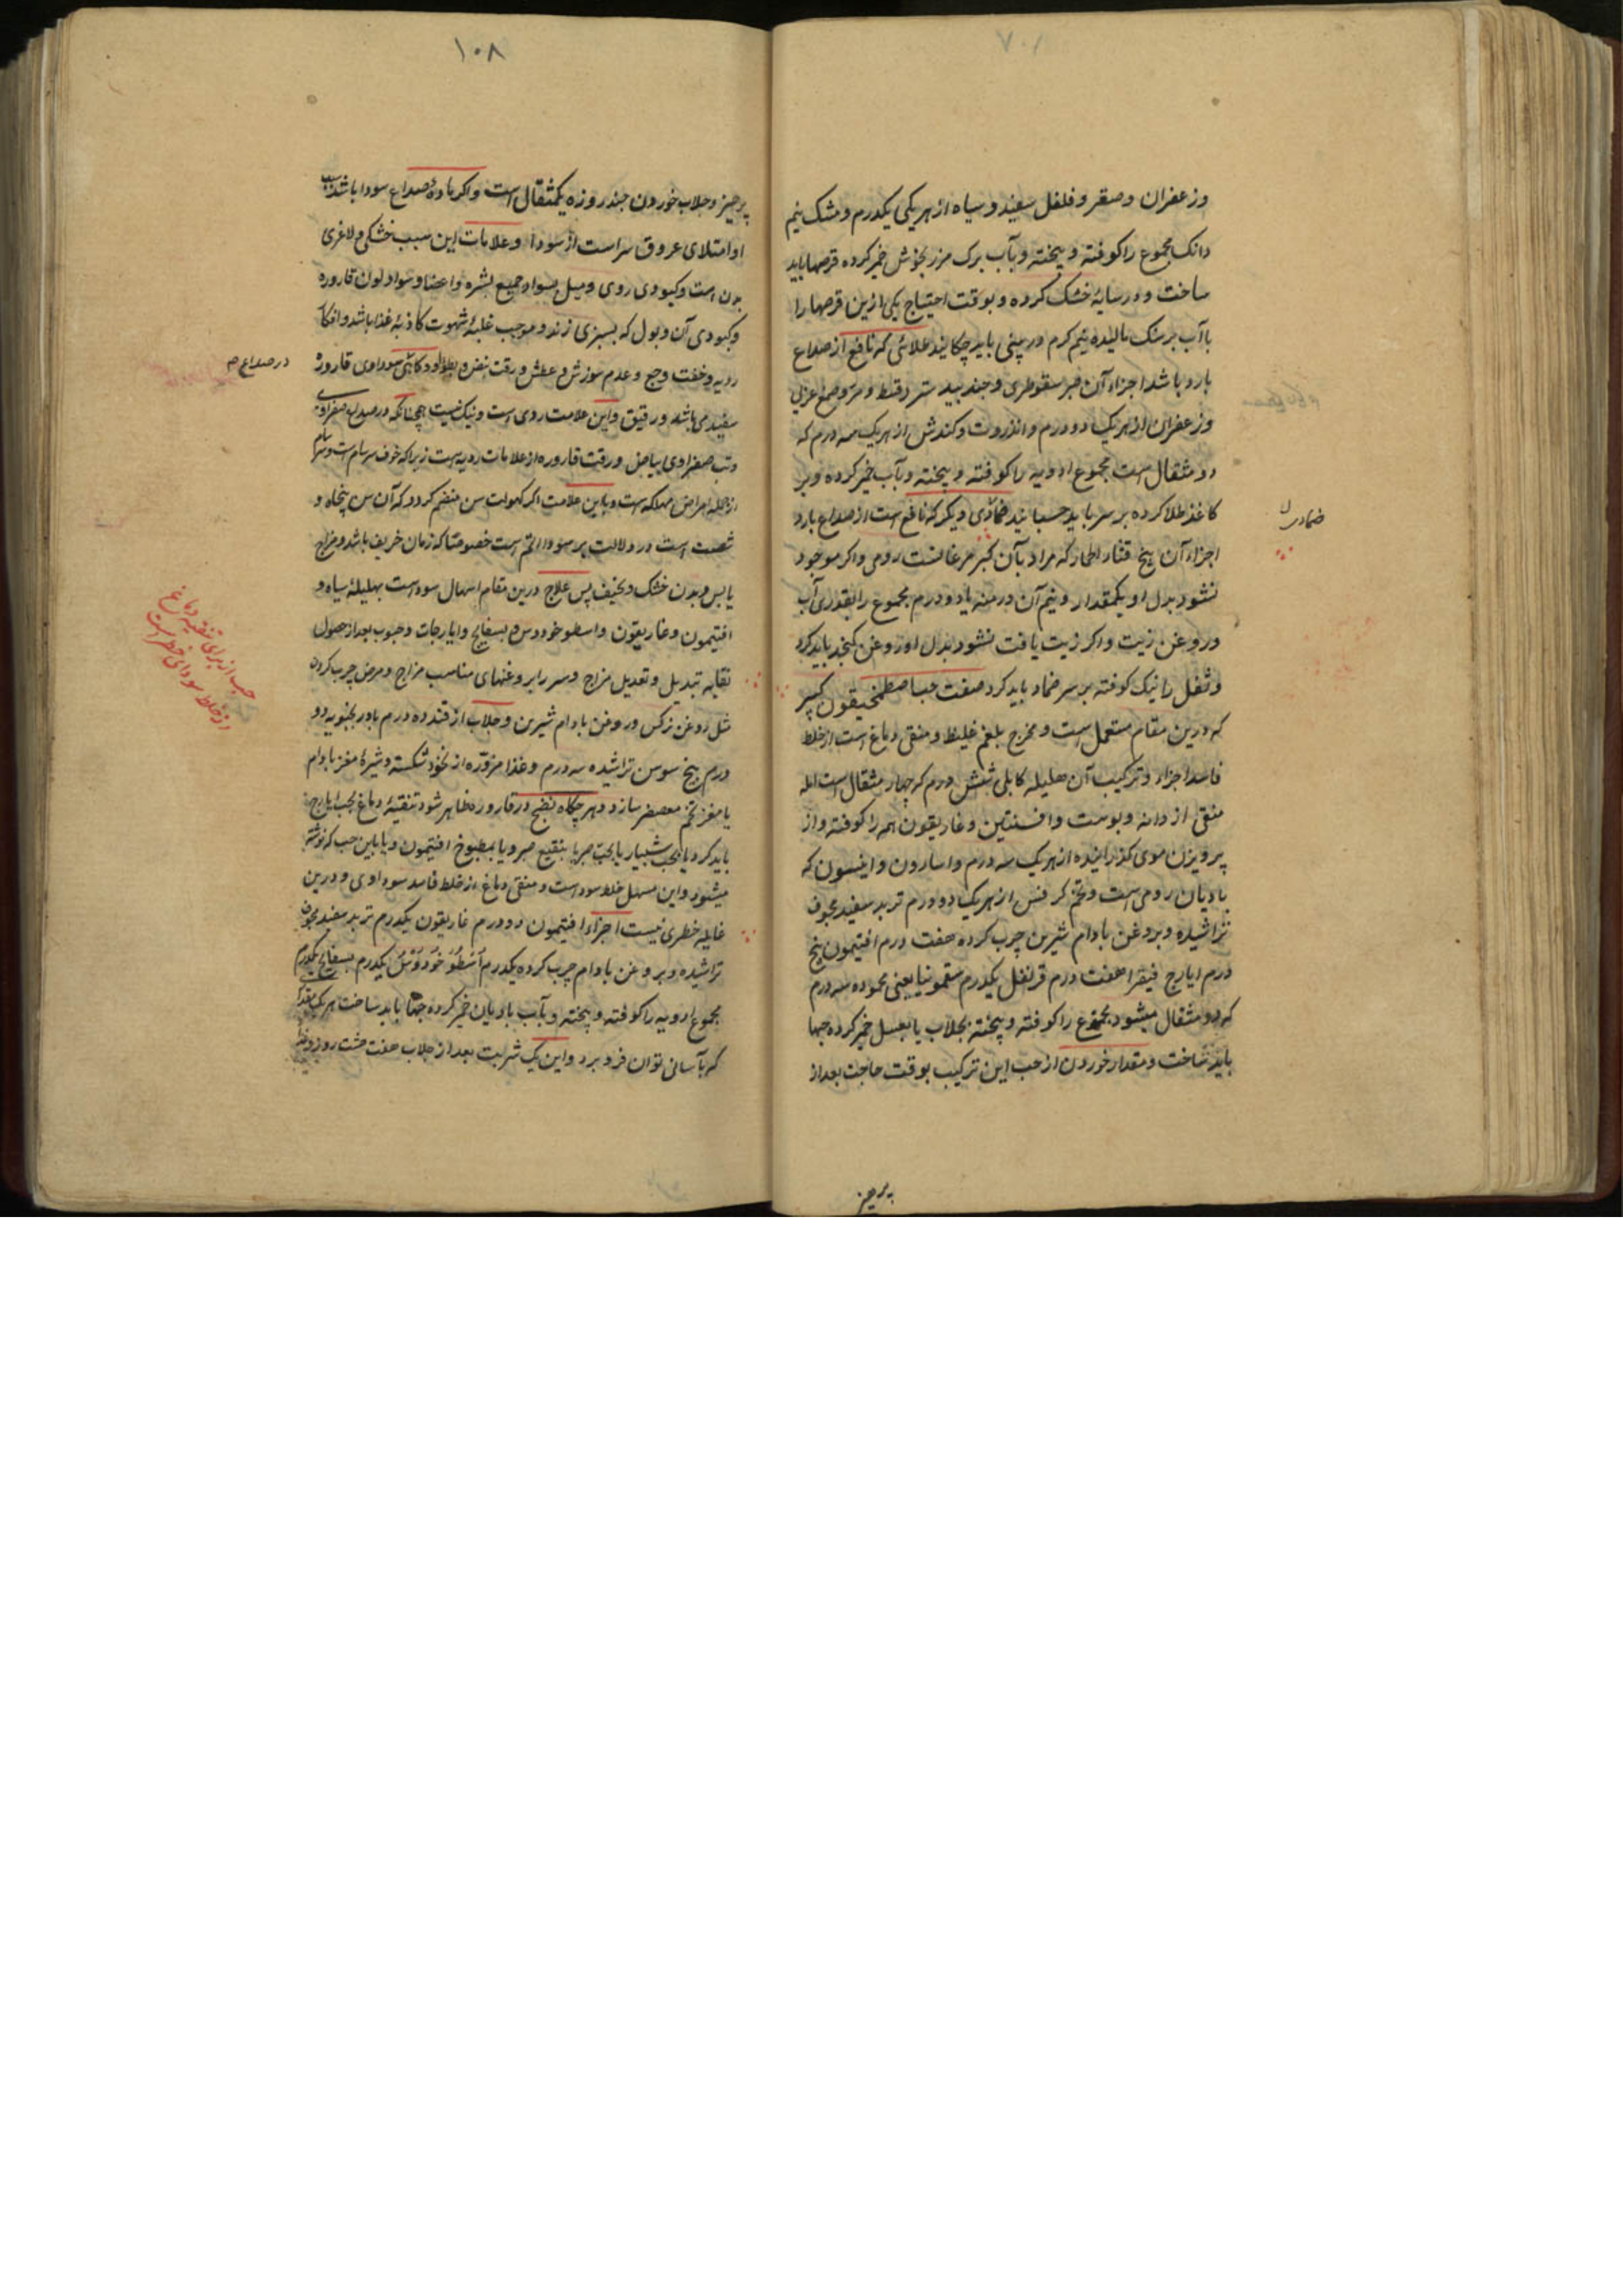 وزعفران وصقر وفلفل سفید وسیاه از هریکی یکدرم ومشک نیم
دانک مجموع را کوفته و بیخته وبآب برک مرزنجوش خمیر کرده قرصها باید
ساخت ودرسایه خشک کرده وبوقت احتیاج یکی ازین قرصها را
باآب برسنک مالیده نیم کرم در بینی باید چکانید طلائی که نافع از صداع
بارد باشد اجزاء آن صبر سقوطری وجندبیدستر وقسط ومر وصمغ عربی
وزعفران از هریک دودرم وانذروت وکندش از هریک سه درم که
دو مثقال است مجموع ادویه را کوفته و بیخته وبآب خمیر کرده وبر
کاغذ طلا کرده بر سر باید چسبانید ضمادی دیکر که نافع است از صداع بارد
ضماد
اجزاء آن بیخ قثاء الحمار که مراد بآن رومی واکر موجود
نشود بدل او یکمقدار ونیم آن درمنه یا دو درم مجموع را بقدری آب
وروغن زیت واکر زیت یافت نشود بدل او روغن کنجد باید کرد
وثفل را نیک کوفته بر سر ضماد باید کرد صفت حب اصطمخیقون کبیر
که درین مقام مستعمل است ومخرج بلغم غلیظ ومنقی دماغ است از خلط
فاسد اجزاء وترکیب آن هلیله کابلی شش درم که چهار مثقال است
منقی از دانه وپوست وافسنتین وغاریقون همه را کوفته واز
پرویزن موی کذرانیده از هریک سه درم واسارون وانیسون که
بادیان رومی است وتخم کرفس از هریک دو درم تربد سفید مجوف
تراشیده وبروغن بادام شیرین چرب کرده هفت درم افتیمون پنج
درم ایارج فیقرا هفت درم قرنفل یکدرم سقمونیا یعنی محموده سه درم
که دو مثقال میشود مجموع را کوفته وبیخته بجلاب یا بعسل خمیر کرده حبها
باید ساخت ومقدار خوردن از حب این ترکیب بوقت حاجت بعد از
پرهیز
۱۰۸
پرهیز وجلاب خوردن چند روزه یکمثقال است واکر ماده صداع سودا باشد سبب
او امتلای عروق سر است از سودا وعلامات این سبب خشکی ولاغری
بدن است وکبودی روی ومیل بسواد جمیع بشره واعضا وسواد لون قاروره
وکبودی آن وبول که بسبزی زند وموجب غلبه شهوت کاذبه غذا باشد وافکار
ردیه وخفت وجع وعدم سوزش وعطش ورقت نبض وکاهی سوداوی قاروره
در صداع
سفید می باشد ورقیق واین علامت ردی است ونیک نیست همچنانکه در صداع صفراوی
وتب صفراوی بیاض ورقت قاروره از علامات ردیه است زیرا که خوف سرسام است وسرسام
از جمله امراض مهلکه است وباین علامت اکر کهولت سن منضم کردد که آن سن پنجاه و
شصت است در دلالت بر سودا اتم است خصوصا که زمان خریف باشد ومزاج
یابس وبدن خشک ونحیف پس علاج درین مقام اسهال سودا است بهلیله سیاه و
افتیمون وغاریقون واسطوخودوس وبسفایج وایارجات وحبوب بعد از حصول
نقا به تبدیل وتعدیل مزاج وسر را بروغنهای مناسب مزاج ومرض چرب کردن
مثل روغن نرکس وروغن بادام شیرین وجلاب از قند ده درم بادرنجبویه دو
درم بیخ سوسن تراشیده سه درم وغذا مزوره از نخود شکسته وشیره مغز بادام
یا مغز تخم معصفر سازد وهرچکاه نضج در قاروره ظاهر شود تنقیه دماغ بحب ایارج
باید کرد یا بحب شبیار یا بحب صبر یا بنقیع صبر ویا بمطبوخ افتیمون ویا باین حب که نوشته
میشود واین مسهل خلط سودا است ومنقی دماغ از خلط فاسد سوداوی ودرین
غایله خطری نیست اجزاء افتیمون دو درم غاریقون یکدرم تربد سفید مجوف
تراشیده وبروغن بادام چرب کرده یکدرم اسطوخودوس یکدرم بسفایج یکدرم
مجموع ادویه را کوفته وبیخته وبآب بادیان خمیر کرده حبها باید ساخت هریک بمقدار
که بآسانی توان فرو برد واین یک شربت بعد از جلاب هفت هشت روز
حب از برای تنقیه دماغ
از خلط سودای